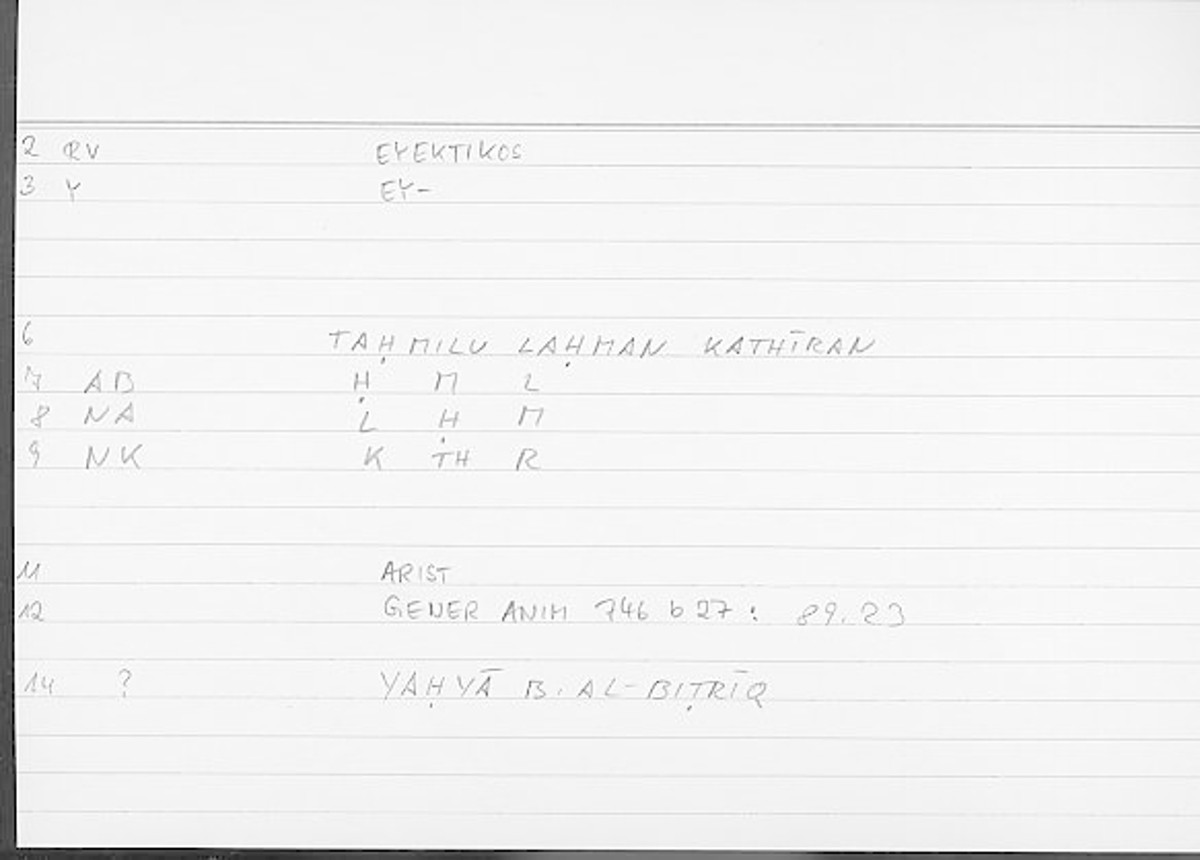 2 RV EYEKTIKOS
3 Y EY-
6 TAḤMILU LAḤMAN KATHĪRAN
7 AB Ḥ M L
8 NA L Ḥ M
9 NK K TH R
11 ARIST
12 GENER ANIM 746 b 27 : 89.23
14 ? YAḤYĀ B. AL-BIṬRĪQ